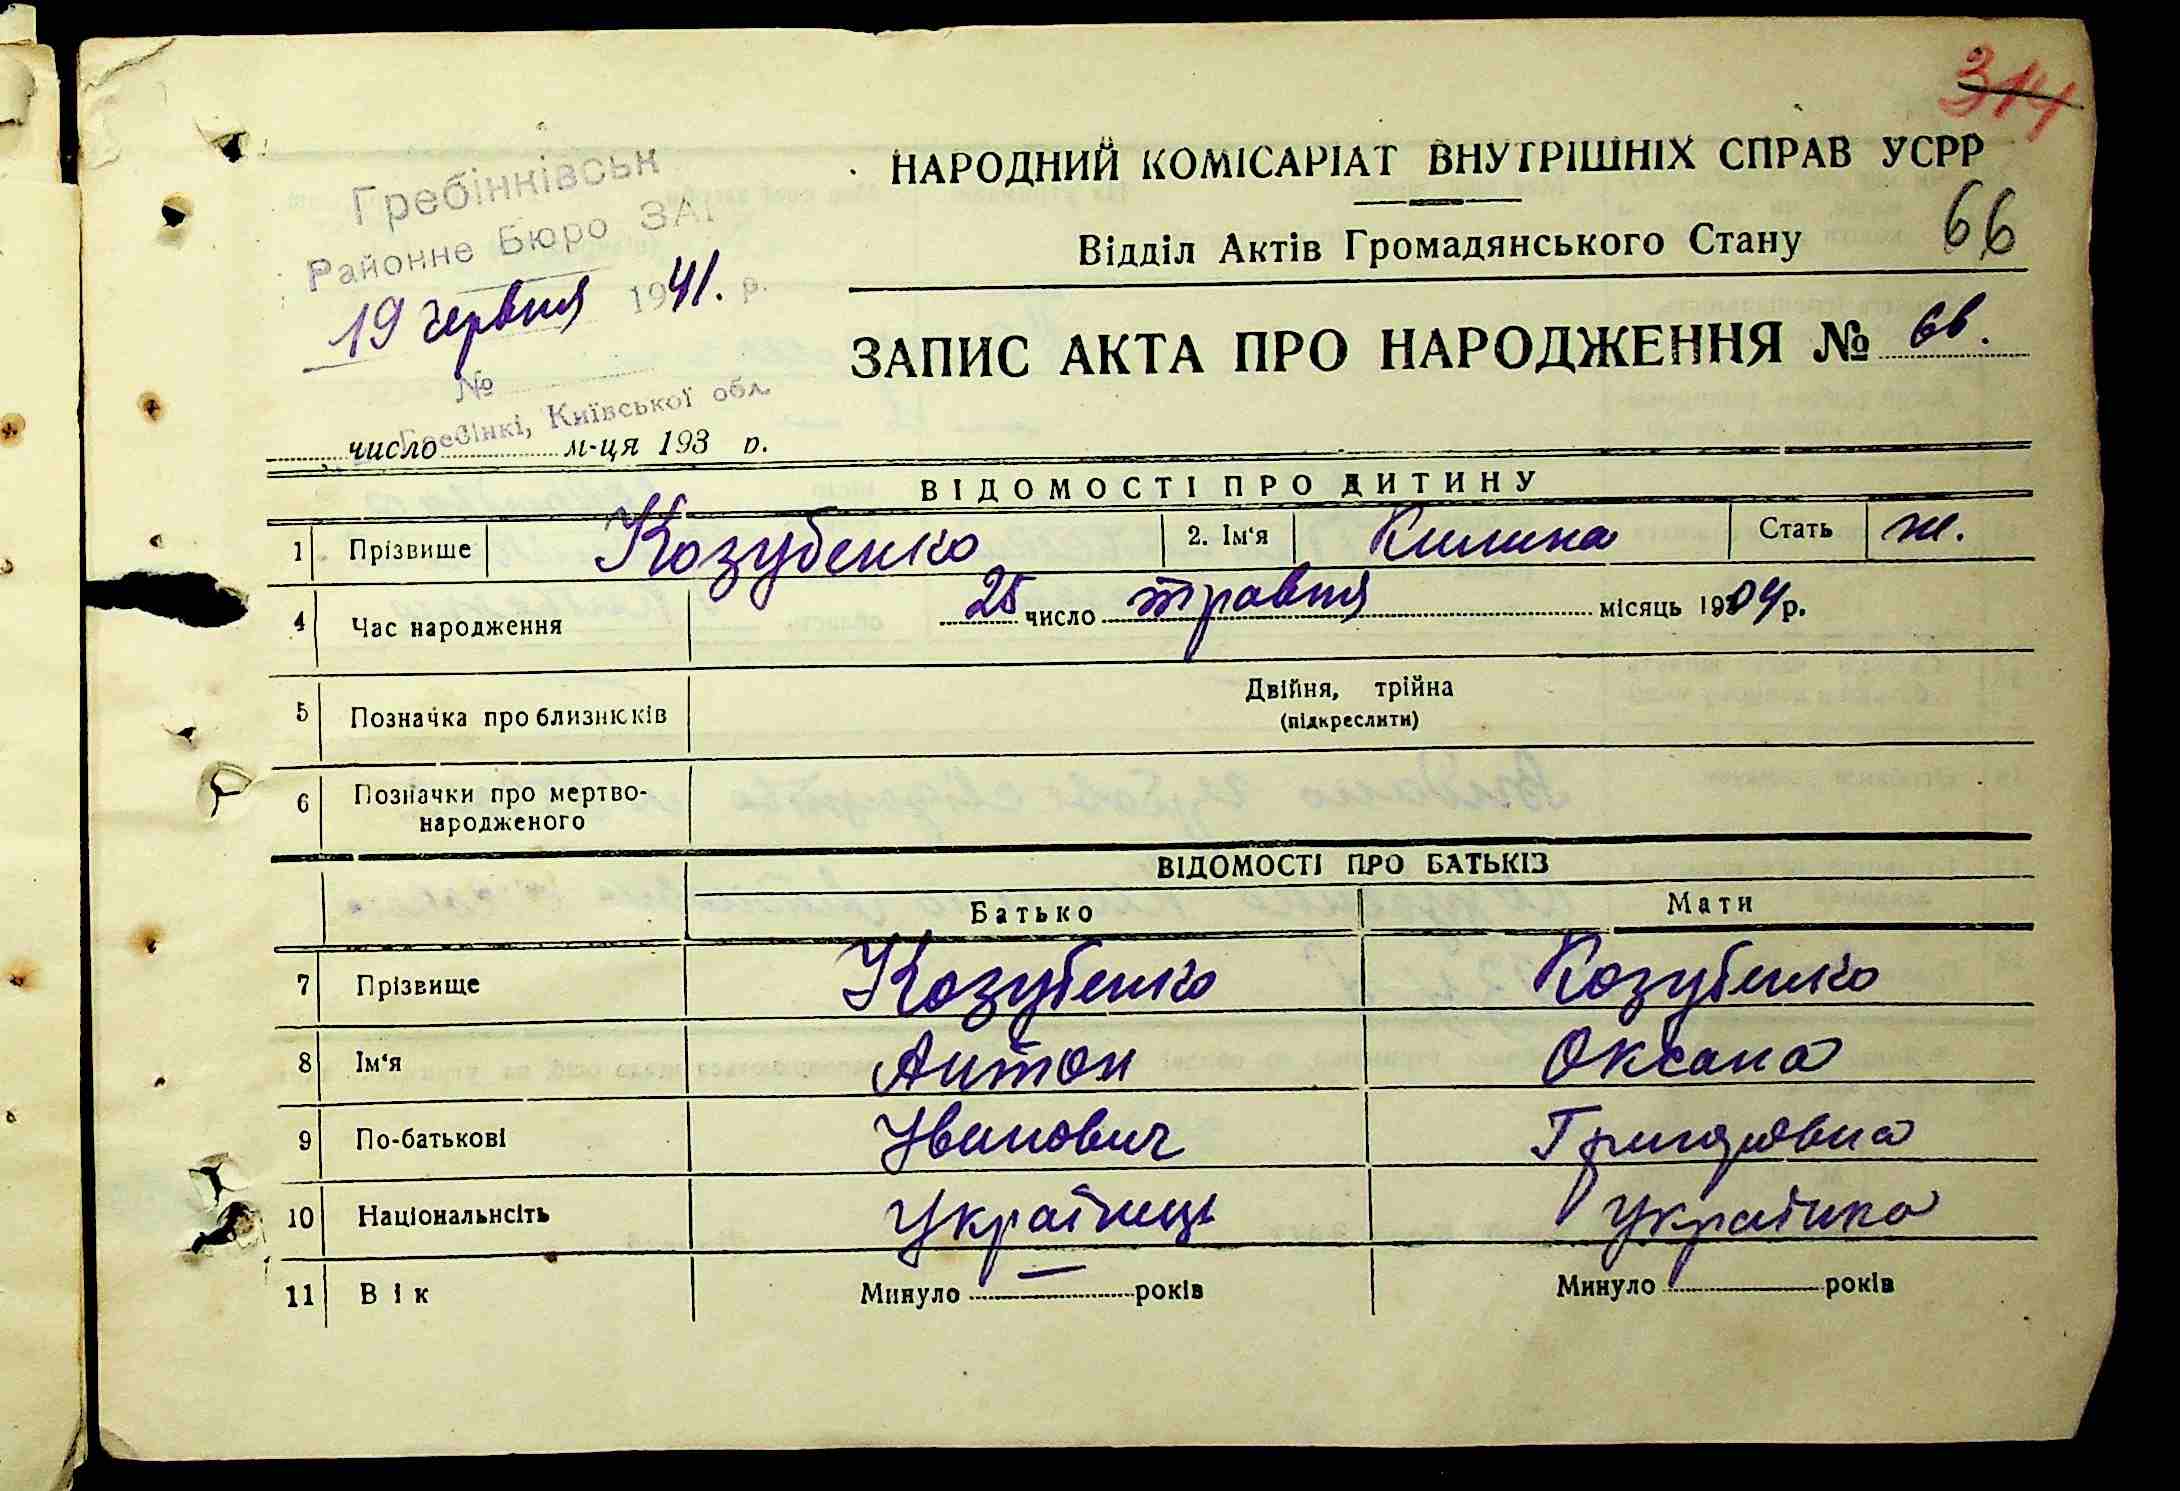 314
НАРОДНИЙ КОМІСАРІАТ ВНУТРІШНІХ СПРАВ УСРР
66
Відділ Актів Громадянського Стану
Гребінківськ
Районне Бюро ЗАГ
19 червня 1941. р.
№
Гребінкі, Київської обл.
ЗАПИС АКТА ПРО НАРОДЖЕННЯ № 66.
число м-ця 193 р.
ВІДОМОСТІ ПРО ДИТИНУ
1 Прізвище Козубенко 2. Ім'я Килина Стать ж.
4 Час народження 25 число травня місяць 1904 р.
5 Позначка про близнюків Двійня, трійна
(підкреслити)
6 Позначки про мертво-
народженого
ВІДОМОСТІ ПРО БАТЬКІВ
Батько Мати
7 Прізвище Козубенко Козубенко
8 Ім'я Антон Оксана
9 По-батькові Иванович Григоровна
10 Національнсіть Українець Українка
11 Вік Минуло — років Минуло років